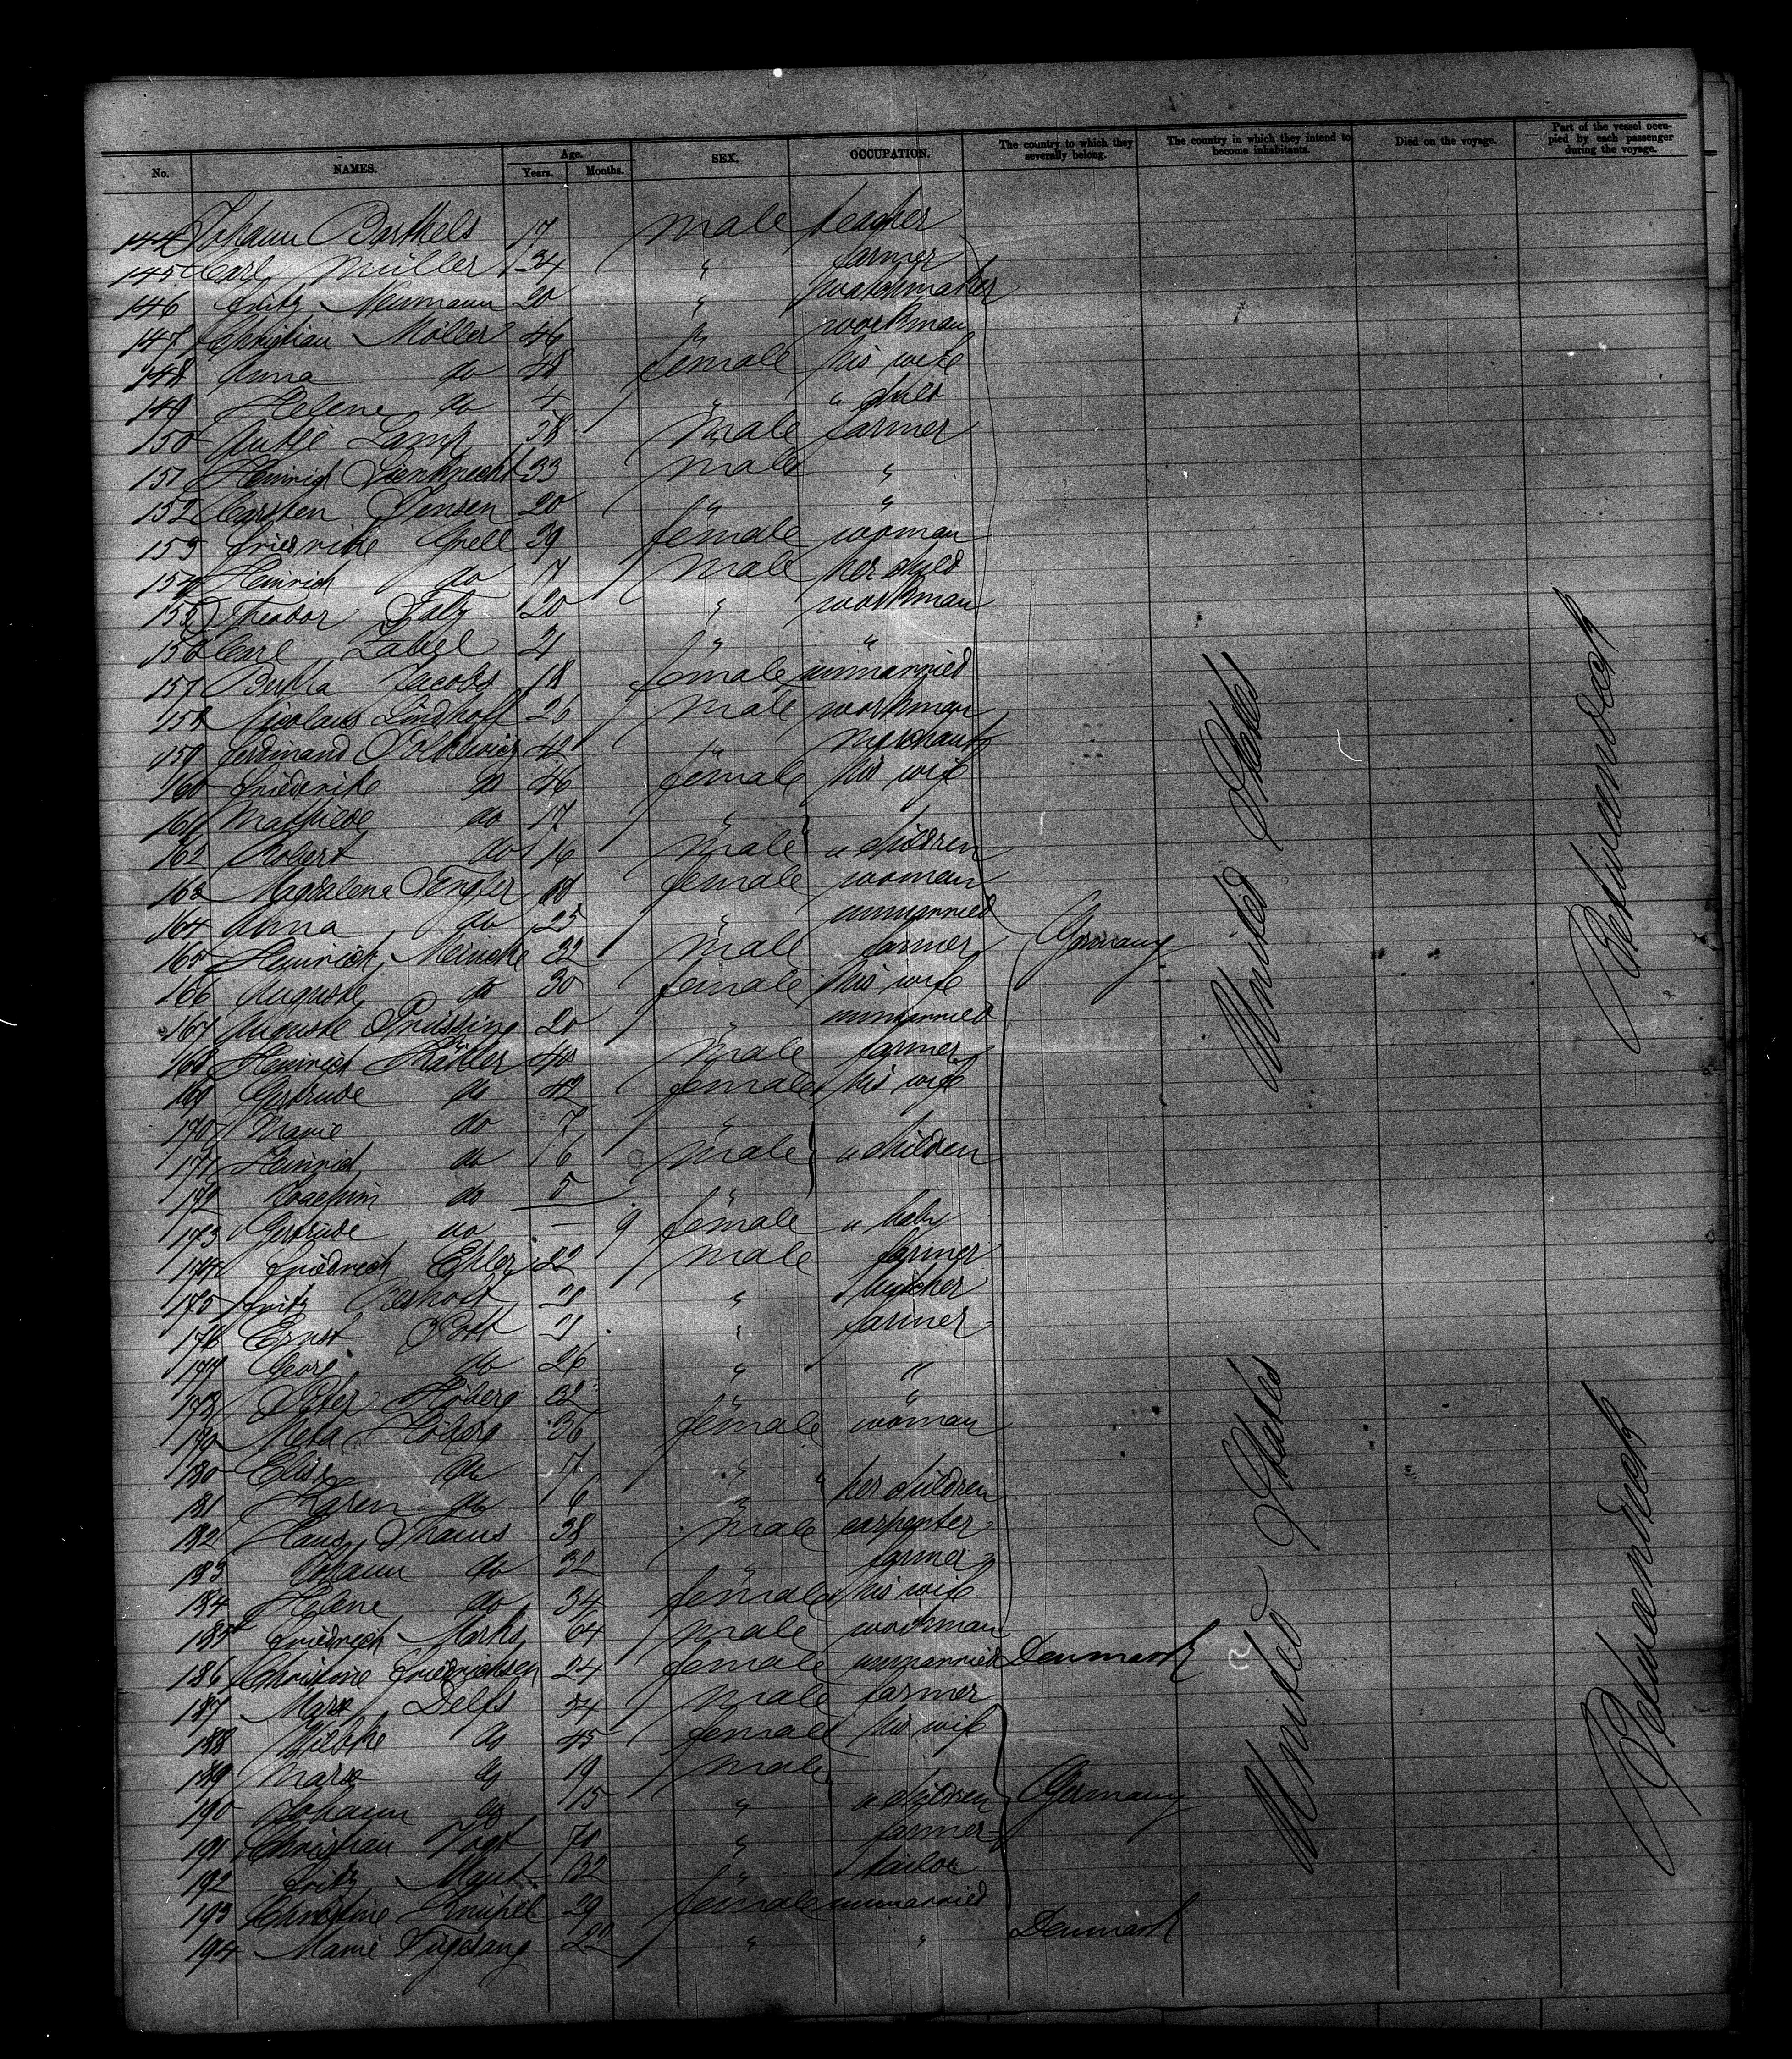 No. NAMES. Age. Years. Months. SEX. OCCUPATION. The country to which they severally belong. The country in which they intend to become inhabitants. Died on the voyage. Part of the vessel occupied by each passenger during the voyage.
144 Johann Barthels 17 male teacher
145 Carl Müller 34 " farmer
146 Fritz Neumann 20 " watchmaker
147 Christian Möller 46 " workman
148 Anna do 48 female his wife
149 Helene do 4 " " child
150 Antje Lamp 58 male farmer
151 Heinrich 33 male "
152 Carsten Jensen 20 " "
153 Friedrike Grell 39 female woman
154 Heinrich do 7 male her child
155 Theodor 20 " workman
156 Carl Zabel 21 " "
157 Bertha Jacobs 18 female unmarried
158 Nicolaus Lindhoff 20 male workman
159 Ferdinand 42 " merchant
160 Friederike do 46 female his wife
161 Mathilde do 17 "
162 Robert do 16 male " children
163 Magdalena Tengler female woman
164 Anna do 25 " unmarried
165 Heinrich Meincke 32 male farmer Germany United States Between deck
166 Auguste do 30 female his wife
167 Auguste Prüssing 20 " unmarried
168 Heinrich Kähler 40 male farmer
169 Gertrude do 42 female his wife
170 Marie do 7 "
171 Heinrich do 6 male " children
172 Joachim do 5 "
173 Gertrude do — 9 female " baby
174 Friedrich Ehlers 22 male farmer
175 Fritz 21 " butcher
176 Ernst Pott 21 " farmer
177 Georg do 26 " "
178 Peter Hoberg 32 " "
179 Meta Hoberg 36 female woman
180 Elise do 7 " "
181 Karen do 6 " her children
182 Hans Thams 38 male carpenter
183 Johann do 32 " farmer
184 Helene do 34 female his wife
185 Friedrich Marks 64 male workman
186 Christine Friedrichsen 24 female unmarried Denmark
187 Marx Delfs 54 male farmer
188 Wiebke do 45 female his wife
189 Marx do 19 male United States Between deck
190 Johann do 15 " " children Germany
191 Christian Vogt 70 " farmer
192 Fritz 32 " tailor
193 Christine 29 female unmarried
194 Marie Fuglsang " " Denmark